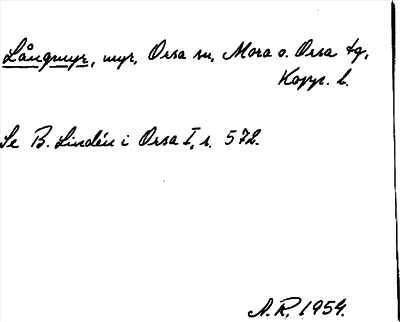 Långmyr, myr, Orsa sn, Mora o. Orsa tg,
Kopp. l.
Se B. Lindén i Orsa I, s. 572.
A. R. 1954.